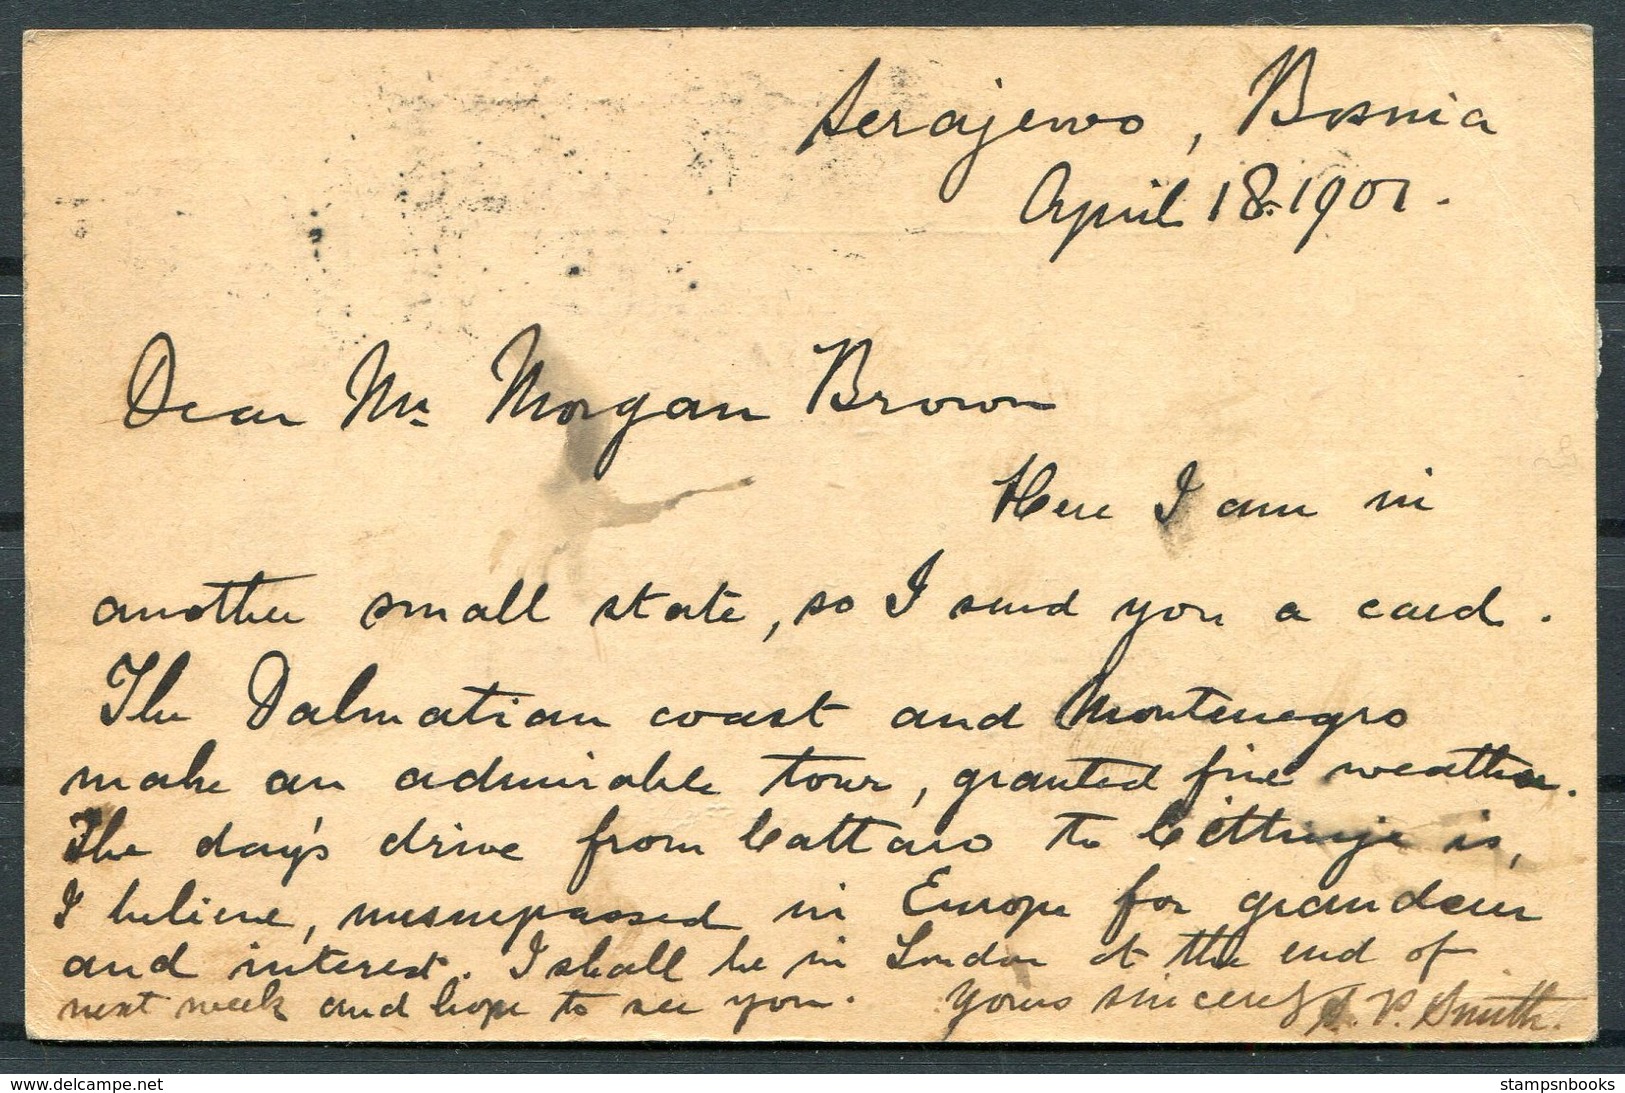 Serajewo, Bosnia
April 18. 1901.
Dear Mr Morgan Brown
Here I am in
another small state, so I send you a card.
The Dalmatian coast and Montenegro
make an admirable tour, granted fine weather.
The day's drive from Cattaro to Cettinje is,
I believe, unsurpassed in Europe for grandeur
and interest. I shall be in London at the end of
next week and hope to see you. Yours sincerely P. Smith.
delcampe.net
stampsnbooks